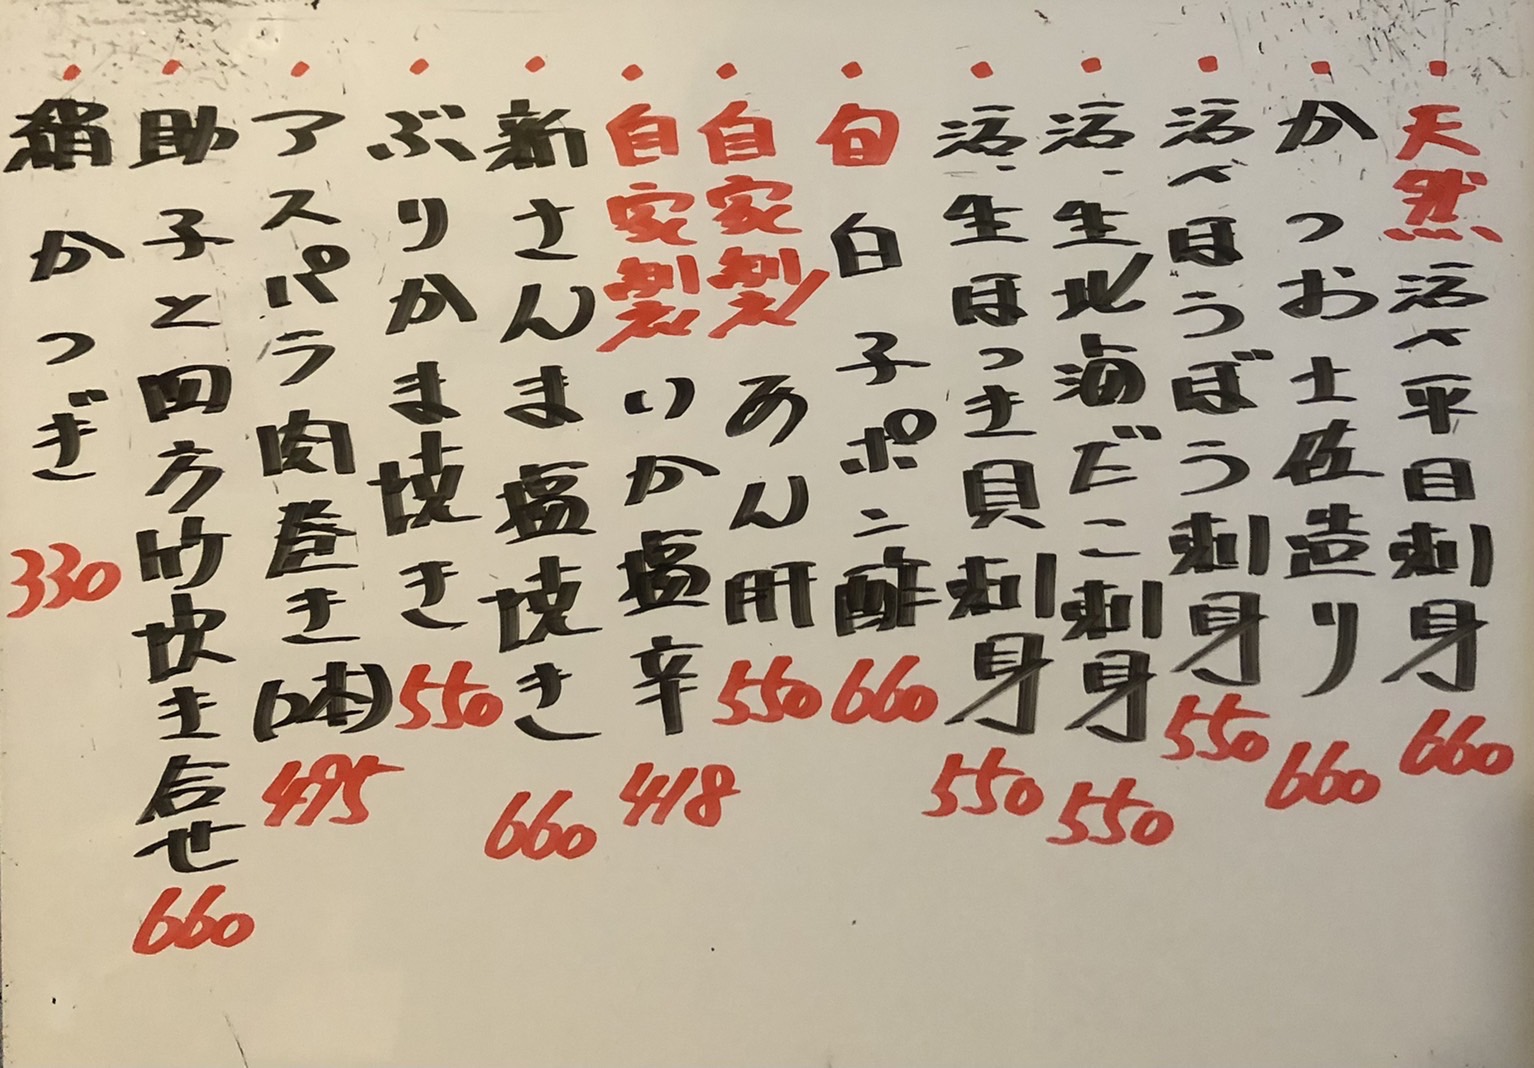 ・天然活〆平目刺身 660
・かつお土佐造り 660
・活〆ほうぼう刺身 550
・活、生北海だこ刺身 550
・活、生ほっき貝刺身 550
・旬白子ポン酢 660
・自家製あん肝 550
・自家製いか塩辛 418
・新さんま塩焼き 660
・ぶりかま焼き 550
・アスパラ肉巻き(2本) 495
・助子と四方竹炊き合せ 660
・絹かつぎ 330